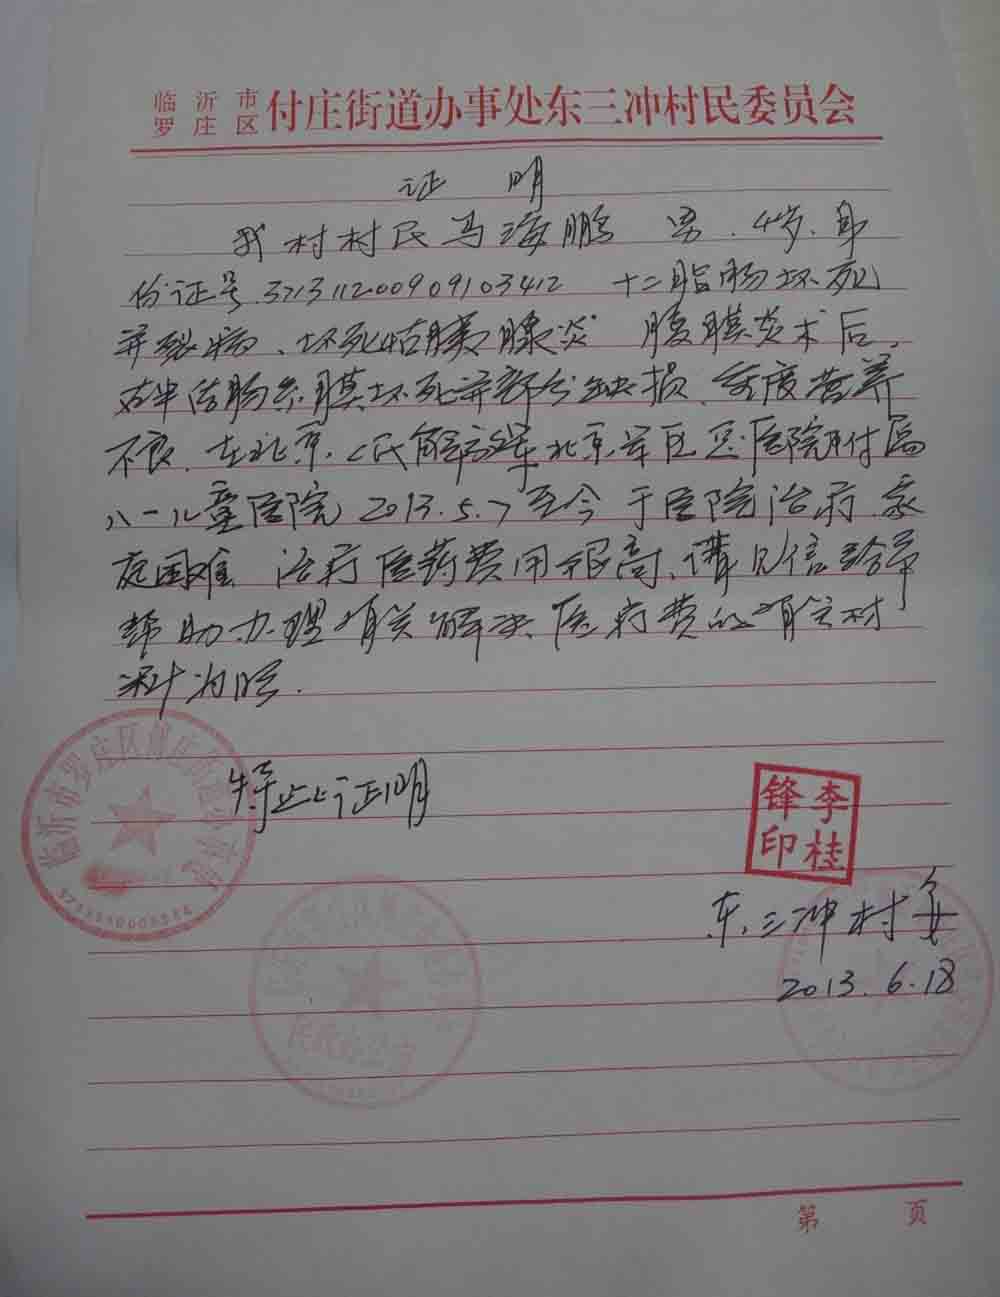 临沂市
罗庄区
付庄街道办事处东三冲村民委员会
证 明
我村村民马海鹏 男.4岁、身
份证号.371311200909103412 十二脂肠坏死
并裂病、坏死性胰腺炎 腹膜炎术后,
右半结肠系膜坏死并部分缺损、重度营养
不良.在北京.人民解放军北京军区总医院附属
八一儿童医院2013.5.7至今于医院治疗 家
庭困难 治疗医药费用很高、请见信给予
帮助办理有关解决医疗费的有关材
料为盼.
特此证明
李桂锋印
东三冲村
2013.6.18
民政办公室
第 页